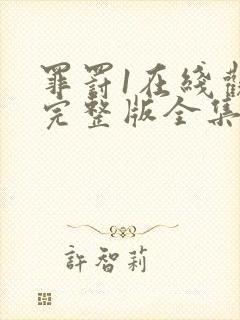 罪罰1在綫
完整版全集
許智莉